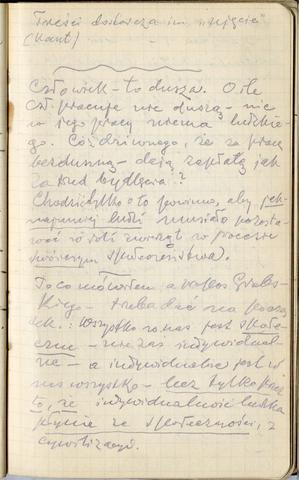 Treści dostarcza im "pojęcie"
(Kant)
Człowiek – to dusza. O ile
człek pracuje nie duszą – nic
w jego pracy niema ludzkie-
go. Cóż dziwnego, że za pracę
bezduszną – dają zapłatę jak
za trud bydlęcia?
Chodziłoby o to powinno, aby jak-
najmniej ludzi musiało pozosta-
wać w roli zwierząt w procesie
twórczym społeczeństwa).
To co mówiłem a propos Grabs-
kiego – trzeba dać na począ-
tek: Wszystko w nas jest społe-
czne – wraz indywidual-
ne – a indywidualne jest w
nas wszystko – lecz tylko przez
to, że indywidualność ludzka
płynie ze społeczności, z
cywilizacyi.